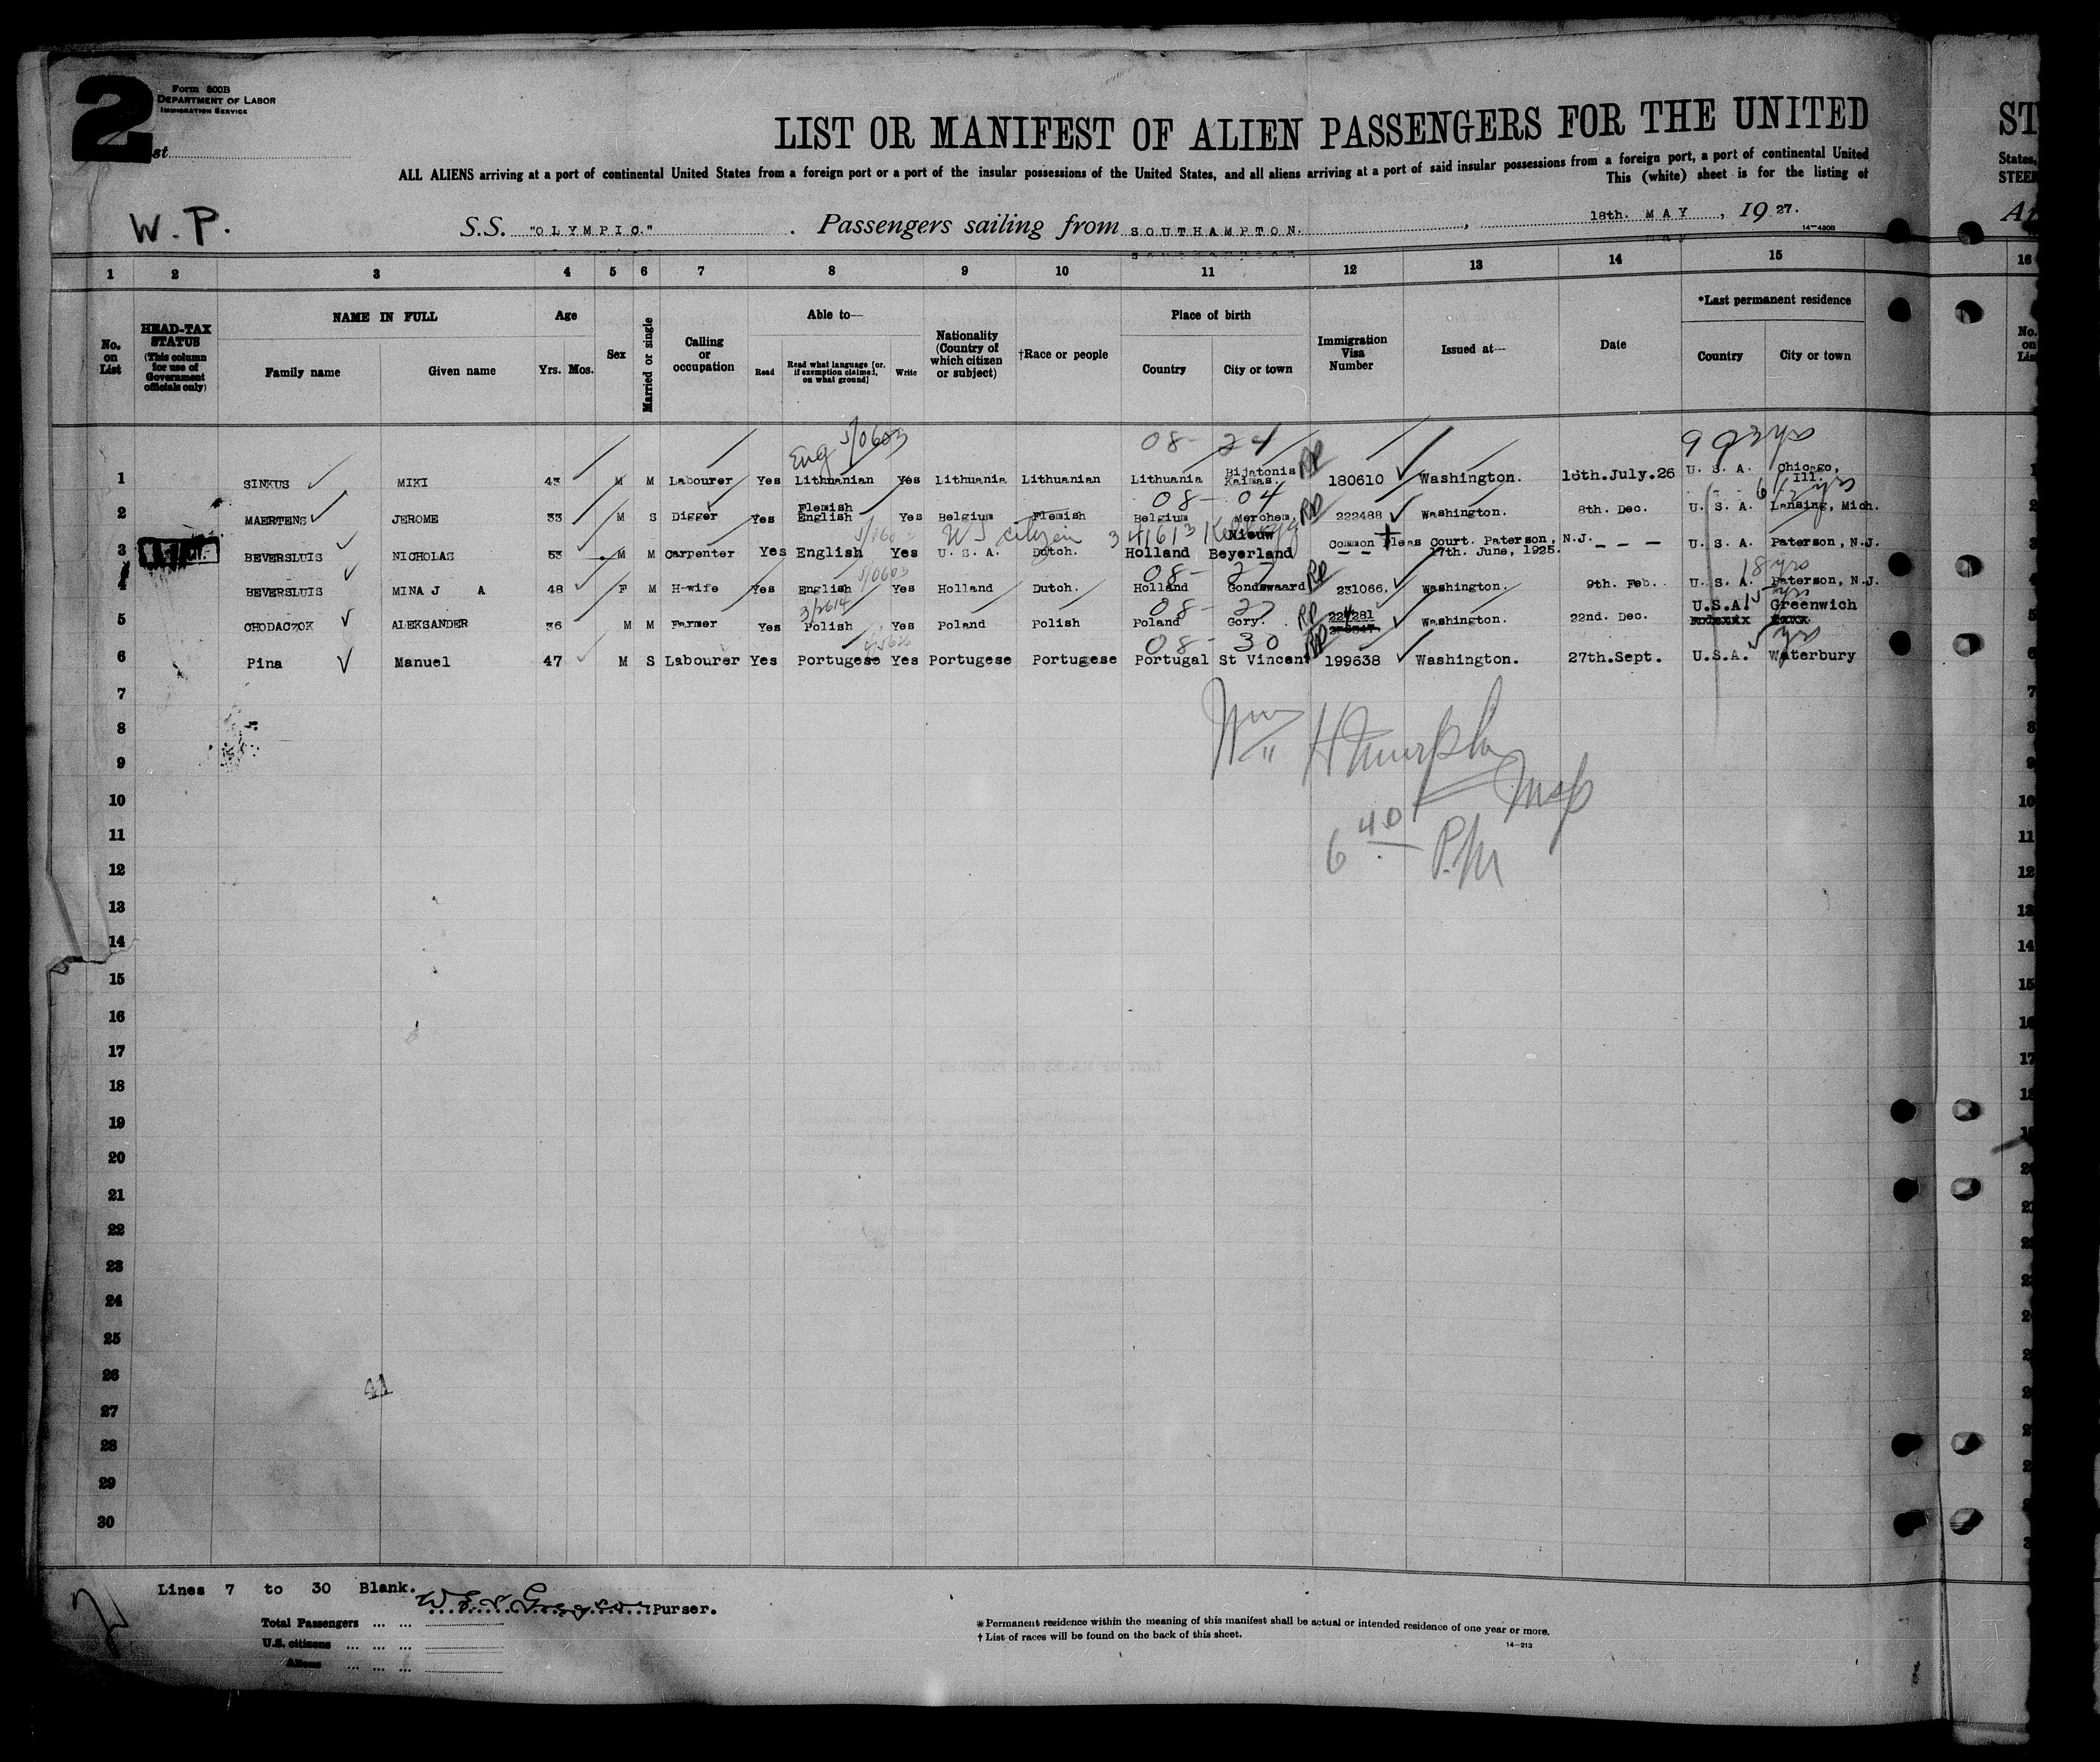 2
Form 500B
DEPARTMENT OF LABOR
IMMIGRATION SERVICE
st
LIST OR MANIFEST OF ALIEN PASSENGERS FOR THE UNITED
ST
ALL ALIENS arriving at a port of continental United States from a foreign port or a port of the insular possessions of the United States, and all aliens arriving at a port of said insular possessions from a foreign port, a port of continental United
States,
This (white) sheet is for the listing of
STEE
W.P.
S.S. "OLYMPIC." Passengers sailing from SOUTHAMPTON. , 18th. MAY , 19 27.
14-430B
1 2 3 4 5 6 7 8 9 10 11 12 13 14 15 16
No. on List
HEAD-TAX STATUS (This column for use of Government officials only)
NAME IN FULL
Family name Given name
Age
Yrs. Mos.
Sex
Married or single
Calling or occupation
Able to—
Read Read what language [or, if exemption claimed, on what ground] Write
Nationality (Country of which citizen or subject)
†Race or people
Place of birth
Country City or town
Immigration Visa Number
Issued at—
Date
*Last permanent residence
Country City or town
Eng 5/0603 08- 24
1 SINKUS MIKI 43 M M Labourer Yes Lithuanian Yes Lithuania Lithuanian Lithuania Bijatonis Kaimas. RP 180610 Washington. 16th.July.26 U. S. A. Chicago, Ill.
08- 04
2 MAERTENS JEROME 33 M S Digger Yes Flemish English Yes Belgium Flemish Belgium Merchem, RP 222488 Washington. 8th. Dec. U. S. A. Lansing, Mich.
US citizen
3 BEVERSLUIS NICHOLAS 53 M M Carpenter Yes English Yes U. S. A. Dutch. Holland Nieuw Beyerland Common Pleas Court. Paterson, N.J. 17th. June, 1925. U. S. A. Paterson, N.J.
5/0603 08- 27 18 yrs
4 BEVERSLUIS MINA J A 48 F M H-wife Yes English Yes Holland Dutch. Holland Gondswaard RP 231066. Washington. 9th. Feb. U. S. A. Paterson, N.J.
3/2614 08- 27 15 yrs
5 CHODACZOK ALEKSANDER 36 M M Farmer Yes Polish Yes Poland Polish Poland Gory. RP 224281 Washington. 22nd. Dec. U.S.A. Greenwich
08- 30 yrs
6 Pina Manuel 47 M S Labourer Yes Portugese Yes Portugese Portugese Portugal St Vincent RP 199638 Washington. 27th.Sept. U.S.A. Waterbury
7
8
Wm H Murphy
9
10
Insp
11
6 40 P.M
12
13
14
15
16
17
18
19
20
21
22
23
24
25
26
41
27
28
29
30
Lines 7 to 30 Blank.
Purser.
Total Passengers ... ...
U.S. citizens ... ... ...
Aliens ... ... ...
*Permanent residence within the meaning of this manifest shall be actual or intended residence of one year or more.
†List of races will be found on the back of this sheet.
14-213